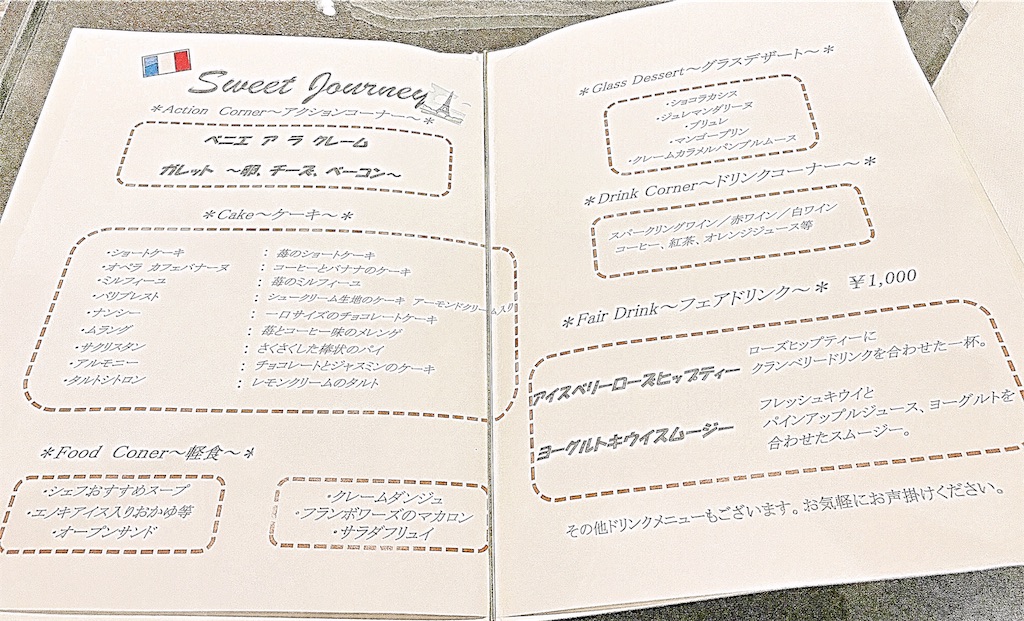 Sweet Journey
＊Action Corner～アクションコーナー～＊
ベニエ ア ラ クレーム
ガレット ～卵、チーズ、ベーコン～
＊Cake～ケーキ～＊
・ショートケーキ ： 苺のショートケーキ
・オペラ カフェバナーヌ ： コーヒーとバナナのケーキ
・ミルフィーユ ： 苺のミルフィーユ
・パリブレスト ： シュークリーム生地のケーキ アーモンドクリーム入り
・ナンシー ： 一口サイズのチョコレートケーキ
・ムラング ： 苺とコーヒー味のメレンゲ
・サクリスタン ： さくさくした棒状のパイ
・アルモニー ： チョコレートとジャスミンのケーキ
・タルトシトロン ： レモンクリームのタルト
＊Food Coner～軽食～＊
・シェフおすすめスープ
・エノキアイス入りおかゆ等
・オープンサンド
・クレームダンジュ
・フランボワーズのマカロン
・サラダフリュイ
＊Glass Dessert～グラスデザート～＊
・ショコラカシス
・ジュレマンダリーヌ
・ブリュレ
・マンゴープリン
・クレームカラメルパンプルムース
＊Drink Corner～ドリンクコーナー～＊
スパークリングワイン／赤ワイン／白ワイン
コーヒー、紅茶、オレンジジュース等
＊Fair Drink～フェアドリンク～＊ ￥1,000
アイスベリーローズヒップティー
ローズヒップティーに
クランベリードリンクを合わせた一杯。
ヨーグルトキウイスムージー
フレッシュキウイと
パインアップルジュース、ヨーグルトを
合わせたスムージー。
その他ドリンクメニューもございます。お気軽にお声掛けください。